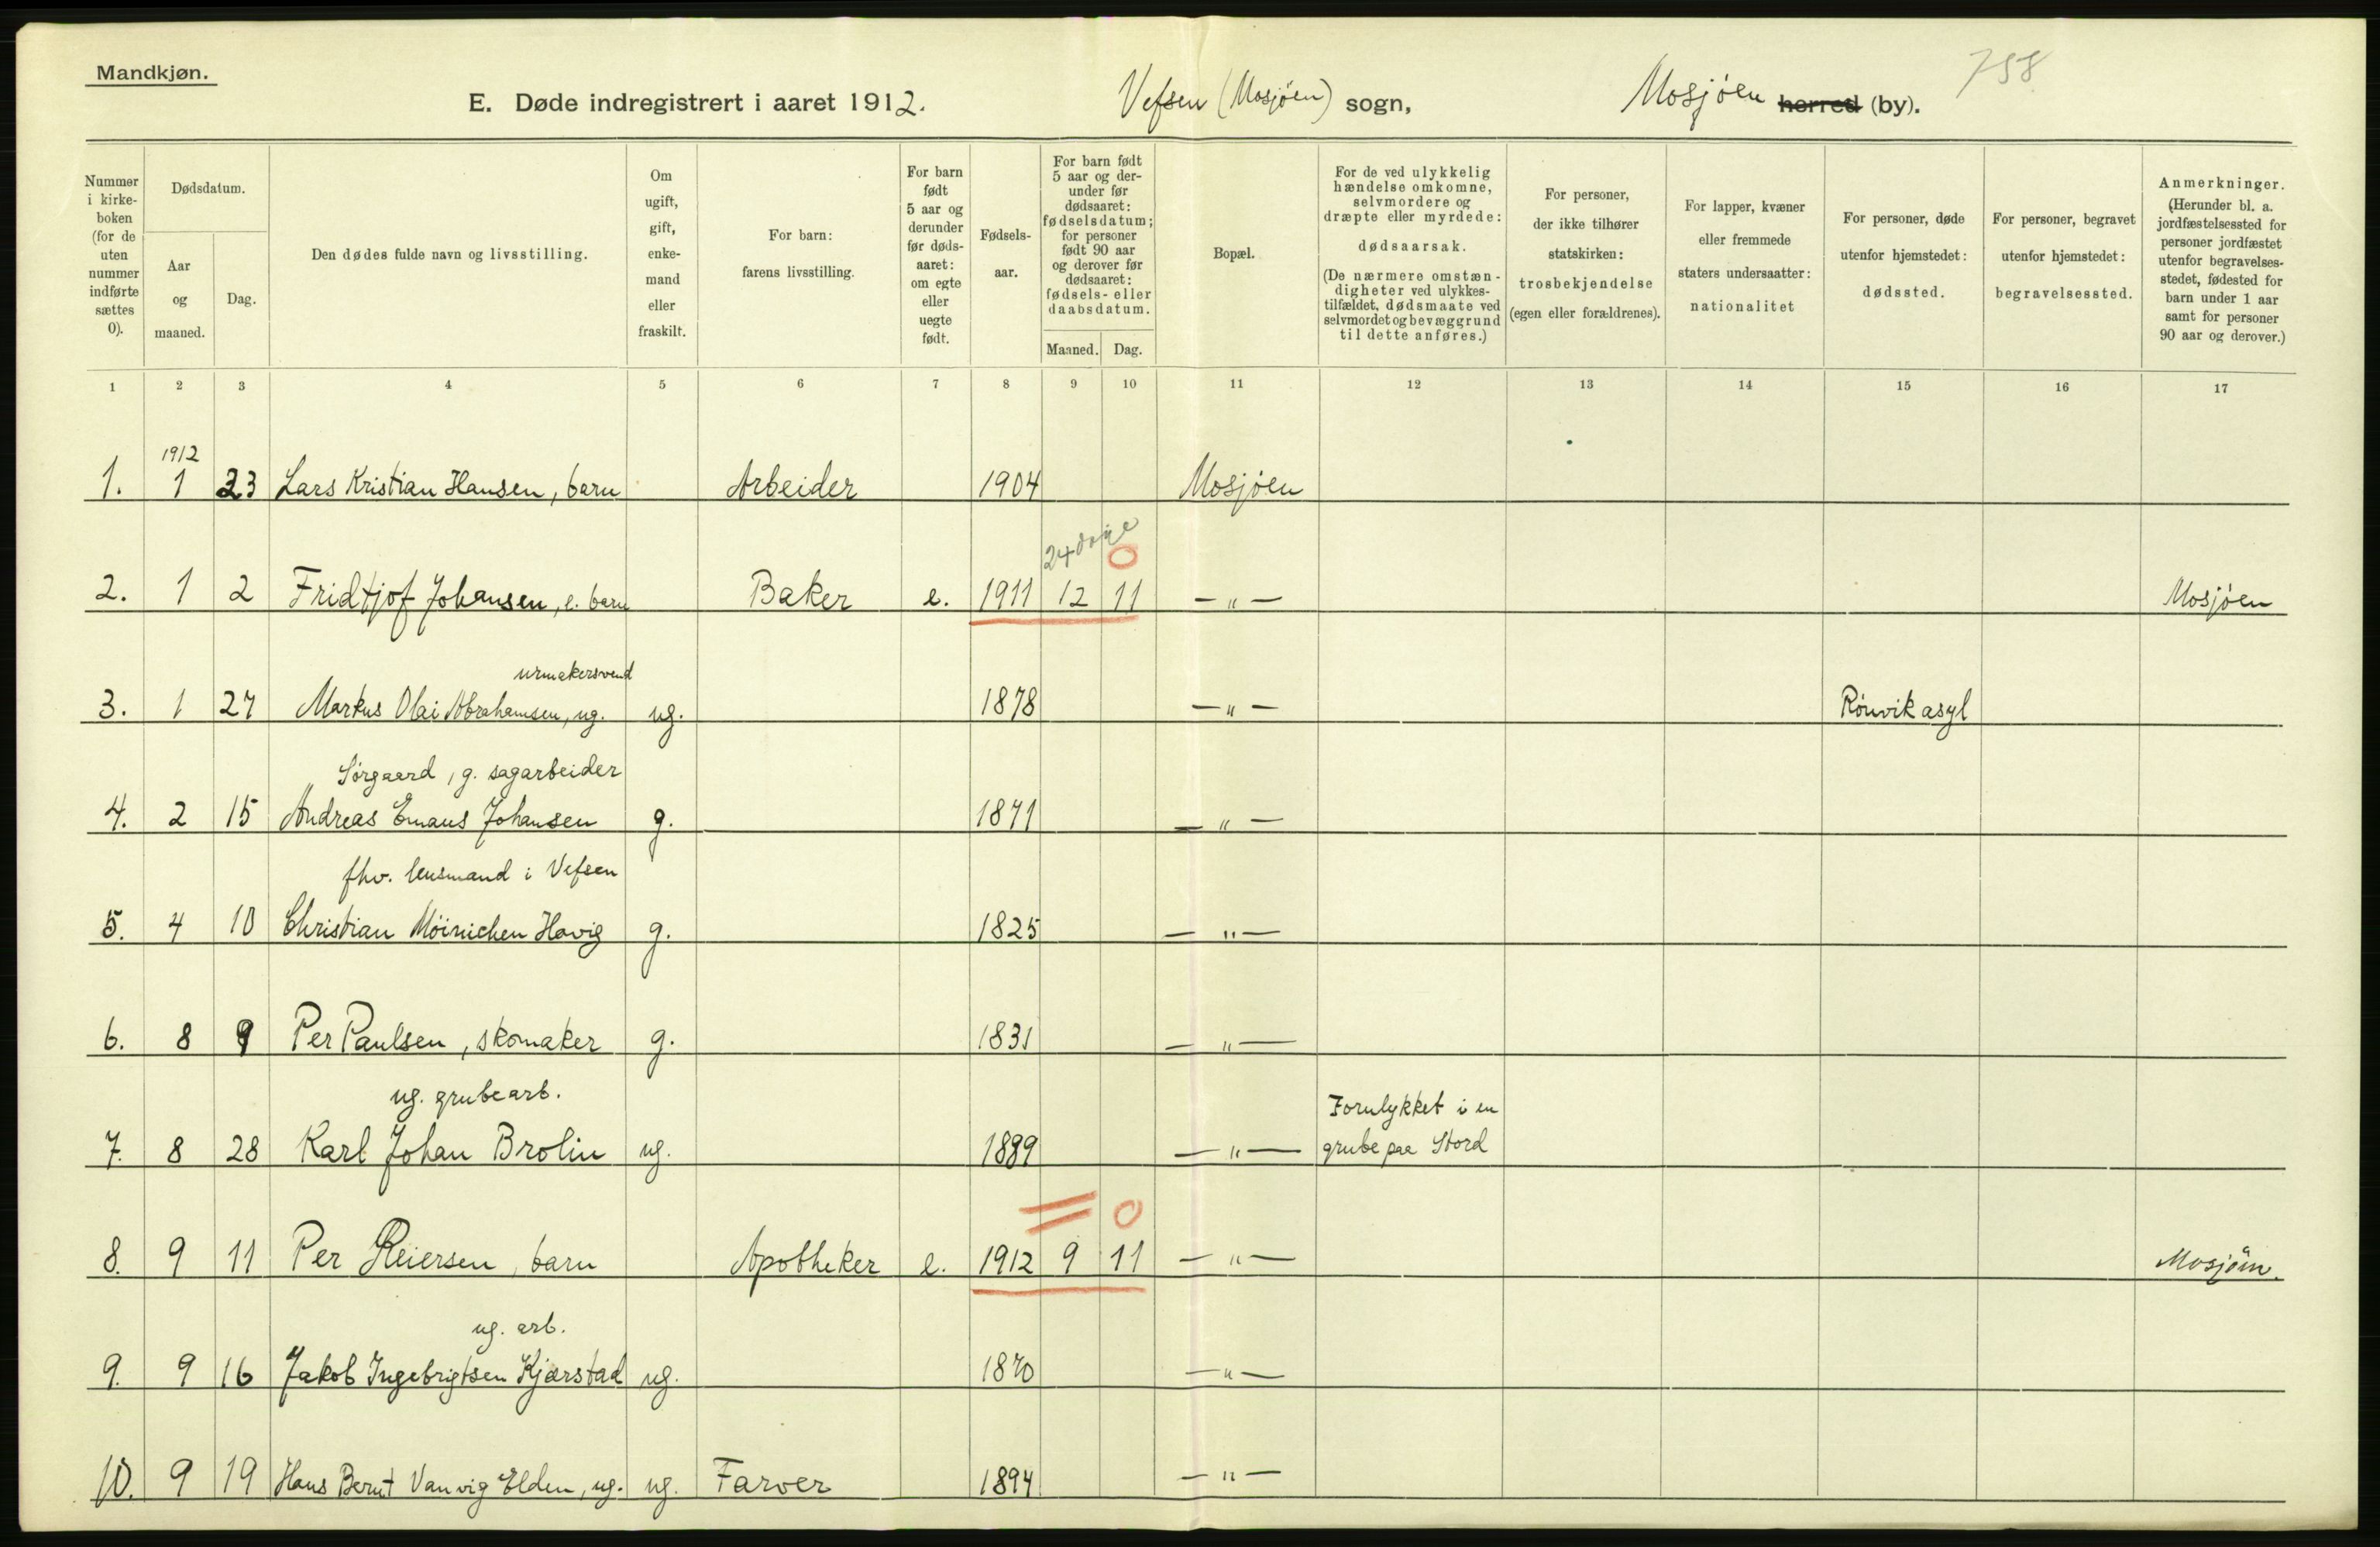 Mandkjøn.
758
E. Døde indregistrert i aaret 1912. Vefsen (Mosjöen) sogn, Mosjöen herred (by).
Nummer i kirke-boken (for de uten nummer indførte sættes 0).
Dødsdatum.
Aar og maaned.
Dag.
Den dødes fulde navn og livsstilling.
Om ugift, gift, enke-mand eller fraskilt.
For barn: farens livsstilling.
For barn født 5 aar og derunder før døds-aaret: om egte eller uegte født.
Fødsels-aar.
For barn født 5 aar og der-under før dødsaaret: fødselsdatum; for personer født 90 aar og derover før dødsaaret: fødsels- eller daabsdatum.
Maaned. Dag.
Bopæl.
For de ved ulykkelig hændelse omkomne, selvmordere og dræpte eller myrdede: dødsaarsak. (De nærmere omstæn-digheter ved ulykkes-tilfældet, dødsmaate ved selvmordet og bevæggrund til dette anføres.)
For personer, der ikke tilhører statskirken: trosbekjendelse (egen eller forældrenes).
For lapper, kvæner eller fremmede staters undersaatter: nationalitet
For personer, døde utenfor hjemstedet: dødssted.
For personer, begravet utenfor hjemstedet: begravelsessted.
Anmerkninger. (Herunder bl. a. jordfæstelsessted for personer jordfæstet utenfor begravelses-stedet, fødested for barn under 1 aar samt for personer 90 aar og derover.)
1 2 3 4 5 6 7 8 9 10 11 12 13 14 15 16 17
1912
1. 1 23 Lars Kristian Hansen, barn Arbeider 1904 Mosjöen
24 dage 0
2. 1 2 Fridtjof Johansen, e. barn Baker e. 1911 12 11 — " — Mosjöen
urmakersvend
3. 1 27 Markus Olai Abrahamsen, ug. ug. 1878 — " — Rönvik asyl
Sörgaard, g. sagarbeider
4. 2 15 Andreas Emaus Johansen g. 1871 — " —
fhv. lensmand i Vefsen
5. 4 10 Christian Möinichen Havig g. 1825 — " —
6. 8 9 Per Paulsen, skomaker g. 1831 — " —
ug. grubearb. Forulykket i en
7. 8 28 Karl Johan Brolin ug. 1889 — " — grube paa Stord
= 0
8. 9 11 Per Reiersen, barn Apotheker e. 1912 9 11 — " — Mosjöen.
ug. arb.
9. 9 16 Jakob Ingebrigtsen Kjærstad ug. 1870 — " —
10. 9 19 Hans Bernt Vanvig Elden, ug. ug. Farver 1894 — " —